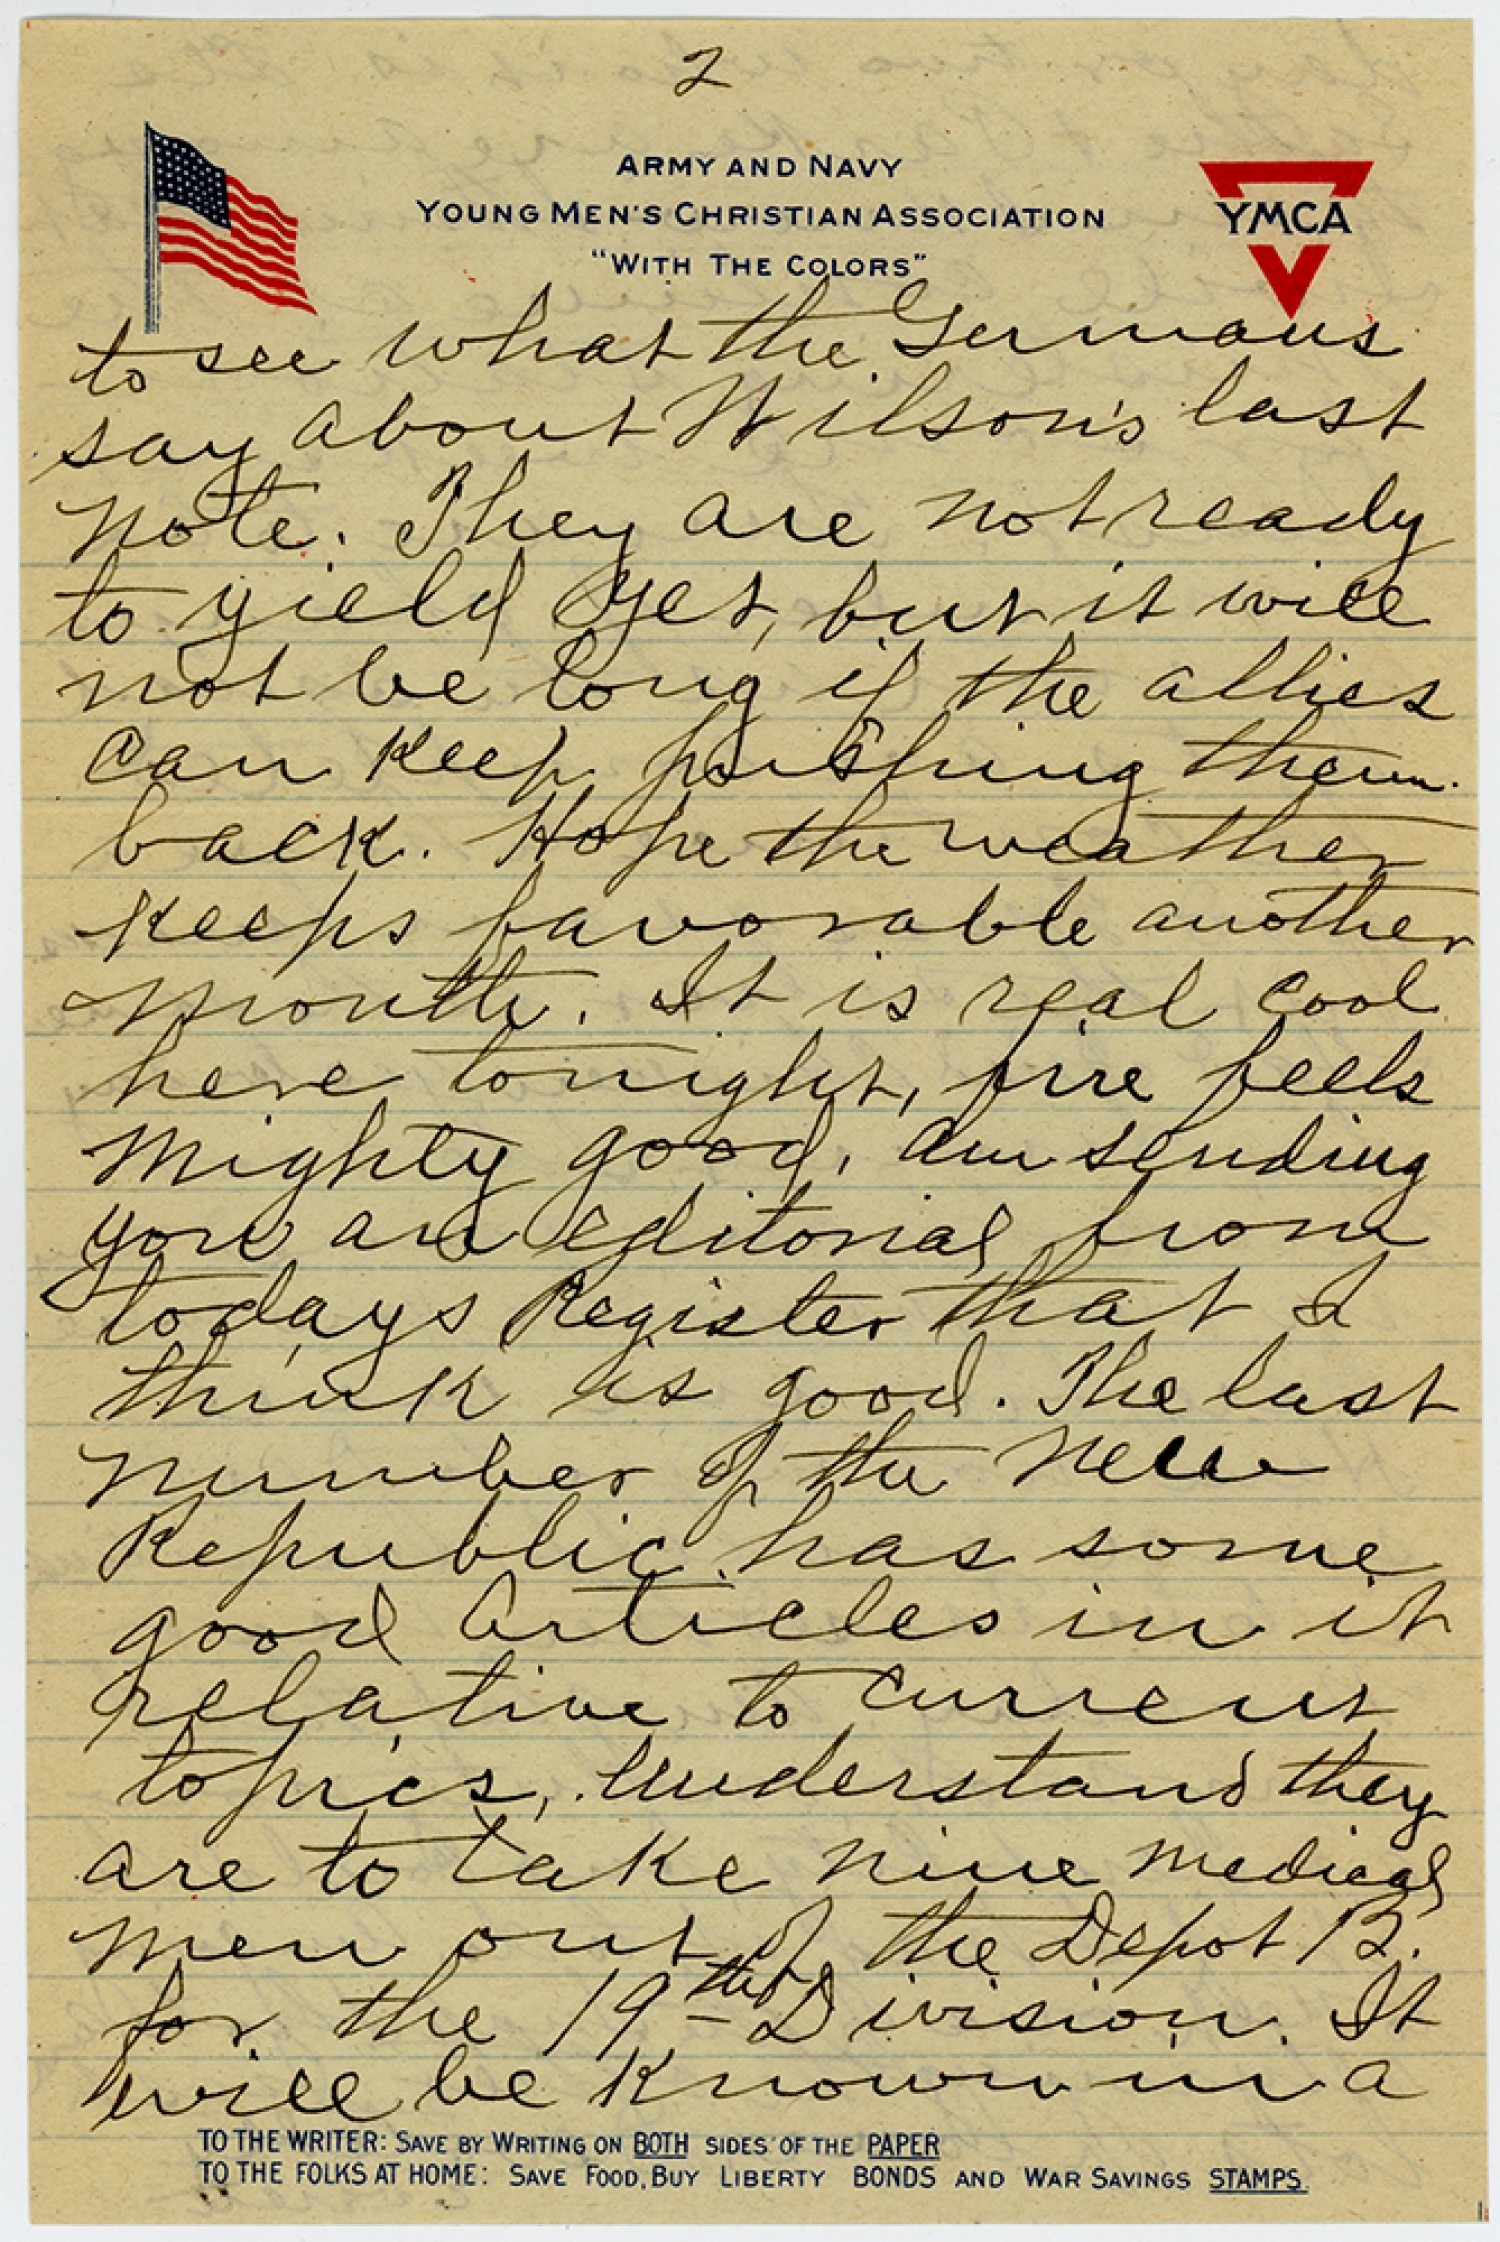 2
ARMY AND NAVY
YOUNG MEN'S CHRISTIAN ASSOCIATION
"WITH THE COLORS"
YMCA
to see what the Germans
say about Wilson's last
note. They are not ready
to yield yet, but it will
not be long if the allies
can keep pushing them
back. Hope the weather
keeps favorable another
month. It is real cool
here tonight, fire feels
mighty good. Am sending
you an editorial from
todays Register that I
think is good. The last
number of the New
Republic has some
good articles in it
relative to current
topics. Understand they
are to take nine medical
men out of the Depot B.
for the 19th Division. It
will be known in a
TO THE WRITER: SAVE BY WRITING ON BOTH SIDES OF THE PAPER
TO THE FOLKS AT HOME: SAVE FOOD, BUY LIBERTY BONDS AND WAR SAVINGS STAMPS.